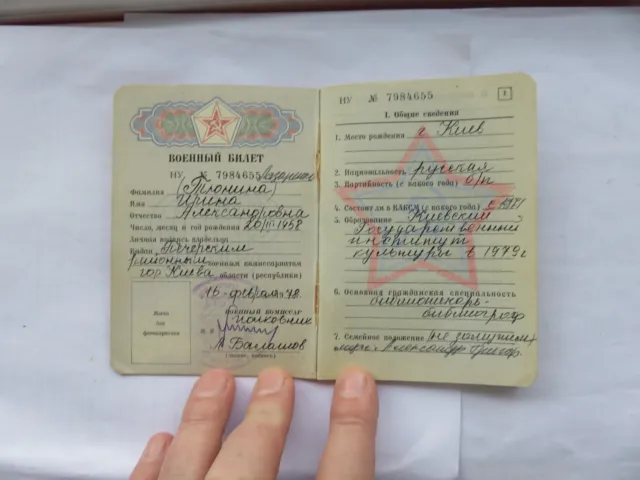 ВОЕННЫЙ БИЛЕТ
НУ № 7984655
Фамилия (Прюнина)
Имя Ирина
Отчество Александровна
Число, месяц и год рождения 20/III-1958
Личная подпись владельца
Выдан Печерским
районным военным комиссариатом
гор Киева области (республики)
16 февраля 78.
Место
для
фотокарточки
ВОЕННЫЙ КОМИССАР
полковник
М. П.
Балашов
(звание, подпись)
НУ № 7984655
1
I. Общие сведения
1. Место рождения г Киев
2. Национальность русская
3. Партийность (с какого года) б/п
4. Состоит ли в ВЛКСМ (с какого года) с 1971
5. Образование Киевский
Государственный
институт
культуры в 1979г
6. Основная гражданская специальность
библиотекарь-
библиограф
7. Семейное положение (не замужем)
Александр